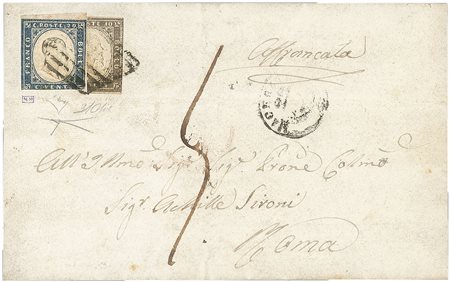 C. POSTE 20
FRANCO
BOLLO
C. VENTI
Affrancata
5
MACE
All' Illmo Sigr Sigr Prone Colmo
Sigr Achille Sironi
Roma